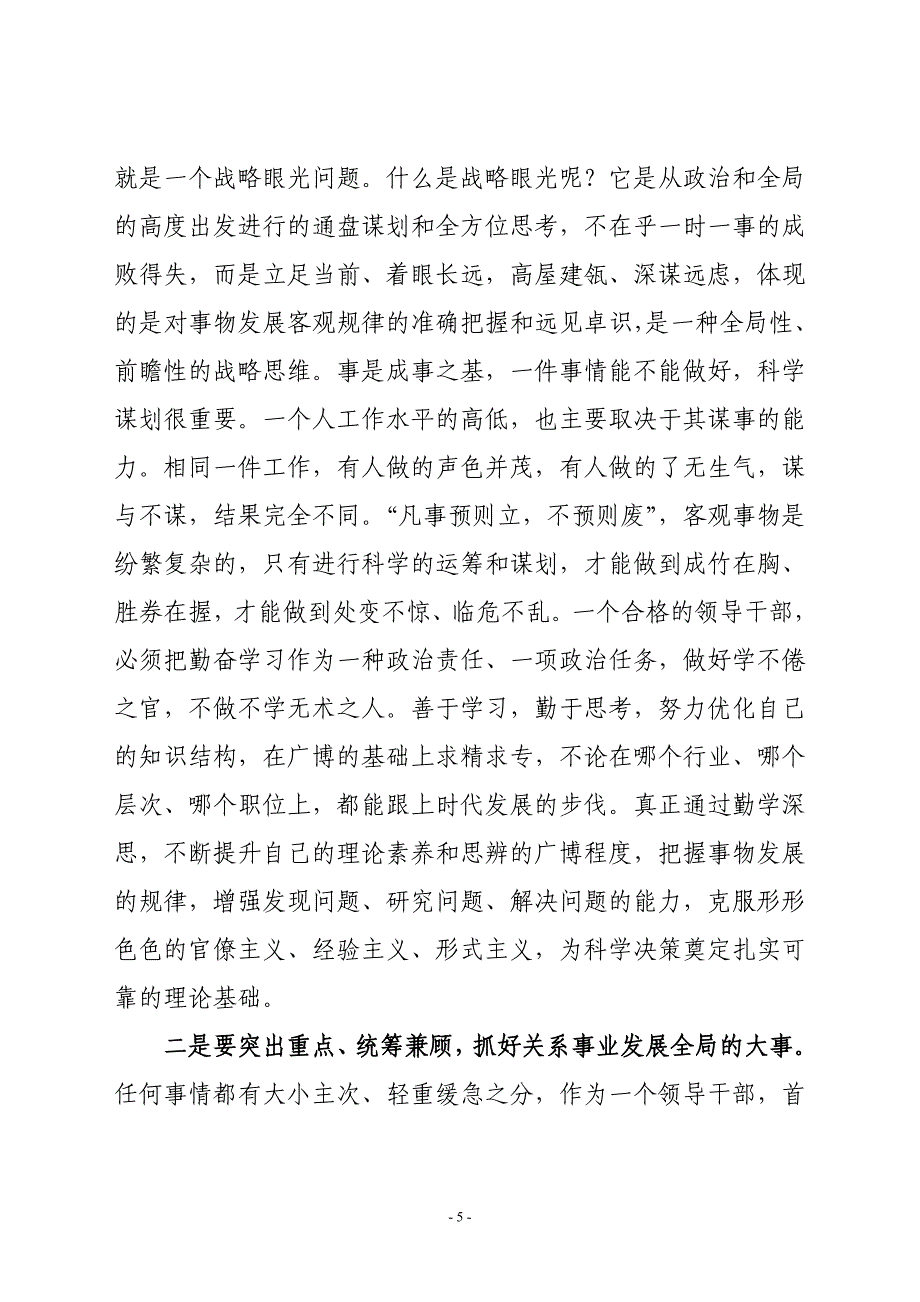 就是一个战略眼光问题。什么是战略眼光呢？它是从政治和全局
的高度出发进行的通盘谋划和全方位思考，不在乎一时一事的成
败得失，而是立足当前、着眼长远，高屋建瓴、深谋远虑，体现
的是对事物发展客观规律的准确把握和远见卓识，是一种全局性、
前瞻性的战略思维。事是成事之基，一件事情能不能做好，科学
谋划很重要。一个人工作水平的高低，也主要取决于其谋事的能
力。相同一件工作，有人做的声色并茂，有人做的了无生气，谋
与不谋，结果完全不同。“凡事预则立，不预则废”，客观事物是
纷繁复杂的，只有进行科学的运筹和谋划，才能做到成竹在胸、
胜券在握，才能做到处变不惊、临危不乱。一个合格的领导干部，
必须把勤奋学习作为一种政治责任、一项政治任务，做好学不倦
之官，不做不学无术之人。善于学习，勤于思考，努力优化自己
的知识结构，在广博的基础上求精求专，不论在哪个行业、哪个
层次、哪个职位上，都能跟上时代发展的步伐。真正通过勤学深
思，不断提升自己的理论素养和思辨的广博程度，把握事物发展
的规律，增强发现问题、研究问题、解决问题的能力，克服形形
色色的官僚主义、经验主义、形式主义，为科学决策奠定扎实可
靠的理论基础。
二是要突出重点、统筹兼顾，抓好关系事业发展全局的大事。
任何事情都有大小主次、轻重缓急之分，作为一个领导干部，首
- 5 -